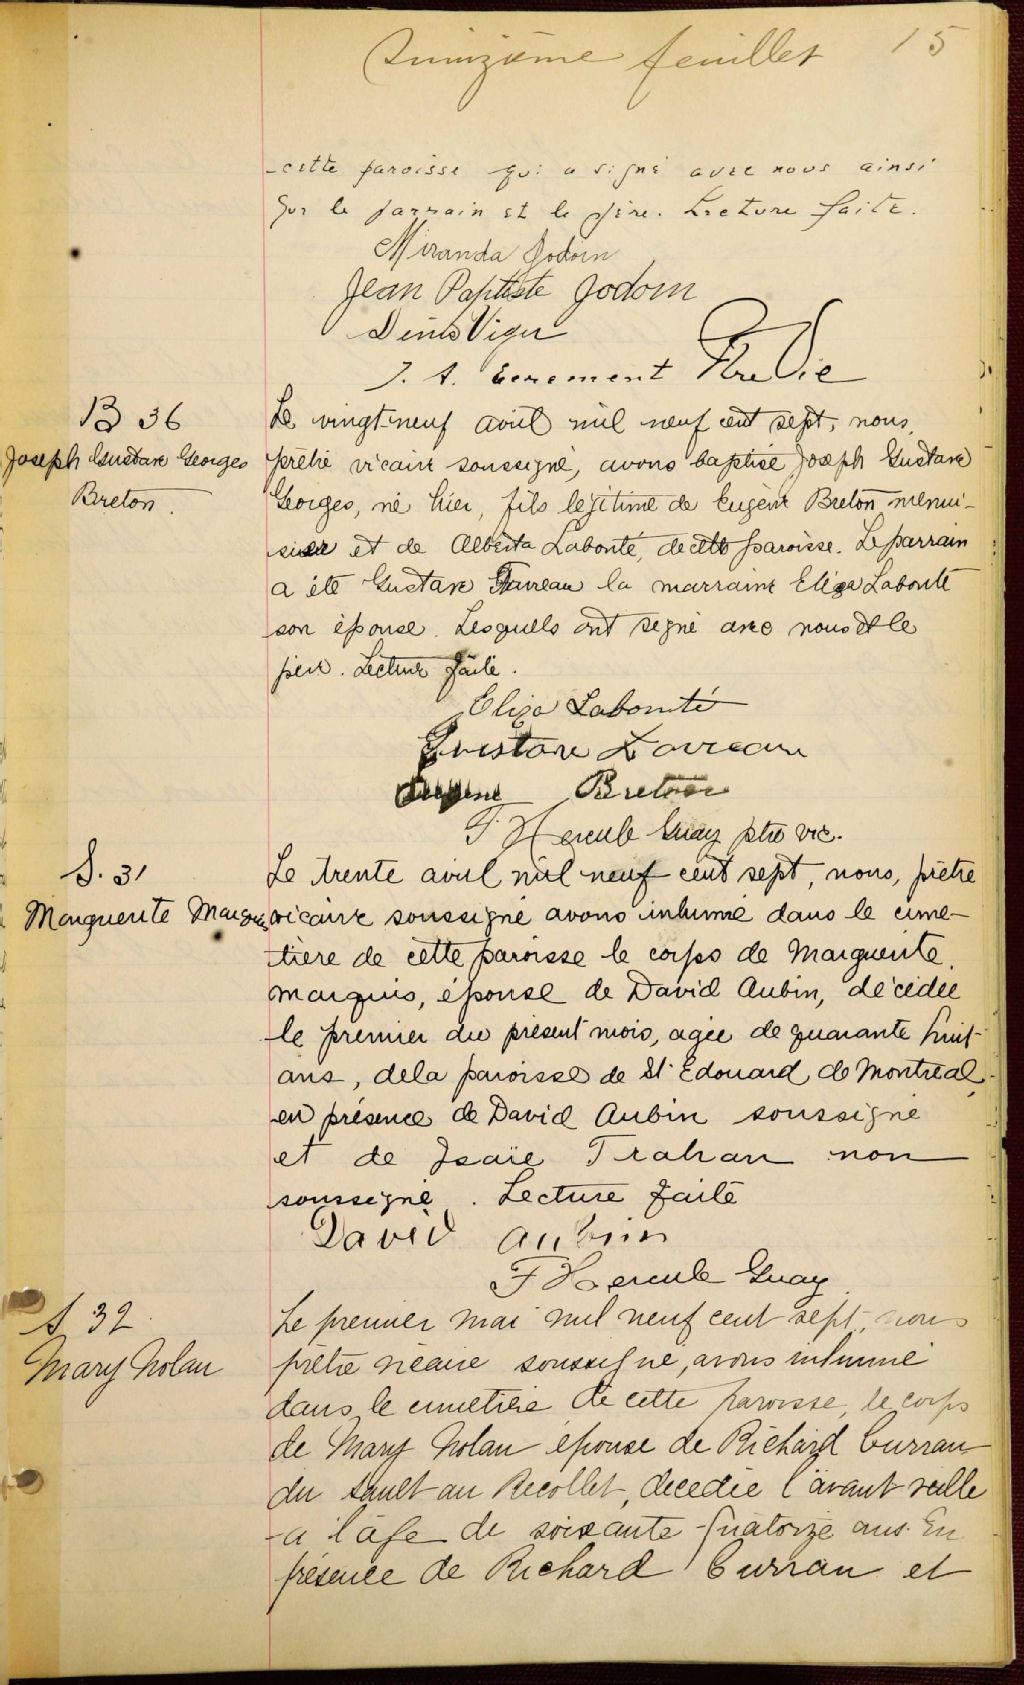 Quinzième feuillet 15
cette paroisse qui a signé avec nous ainsi
que le parrain et le père. Lecture faite.
Miranda Jodoin
Jean Baptiste Jodoin
Denis Viger
J. A. Ptre Vic
B 36
Joseph Gustave Georges
Breton.
Le vingt-neuf avril mil neuf cent sept, nous,
prêtre vicaire soussigné, avons baptisé Joseph Gustave
Georges, né hier, fils légitime de Eugène Breton menui-
sier et de Alberta Labonté, de cette paroisse. Le parrain
a été Gustave Favreau la marraine Eliza Labonté
son épouse. Lesquels ont signé avec nous et le
père. Lecture faite.
Eliza Labonté
Gustave Favreau
Eugène Breton
F Hercule Guay ptre vic.
S. 31
Marguerite Marquis
Le trente avril mil neuf cent sept, nous, prêtre
vicaire soussigné avons inhumé dans le cime-
tière de cette paroisse le corps de Marguerite
Marquis, épouse de David Aubin, décédée
le premier du présent mois, agée de quarante huit
ans, de la paroisse de St Edouard de Montréal,
en présence de David Aubin soussigné
et de Isaïe Trahan non
soussigné. Lecture faite
David Aubin
F Hercule Guay
S 32
Mary Nolan
Le premier mai mil neuf cent sept, nous
prêtre vicaire soussigné, avons inhumé
dans le cimetière de cette paroisse, le corps
de Mary Nolan épouse de Richard Curran
du Sault au Recollet, decedée l'avant veille
a l'âge de soixante quatorze ans. En
présence de Richard Curran et